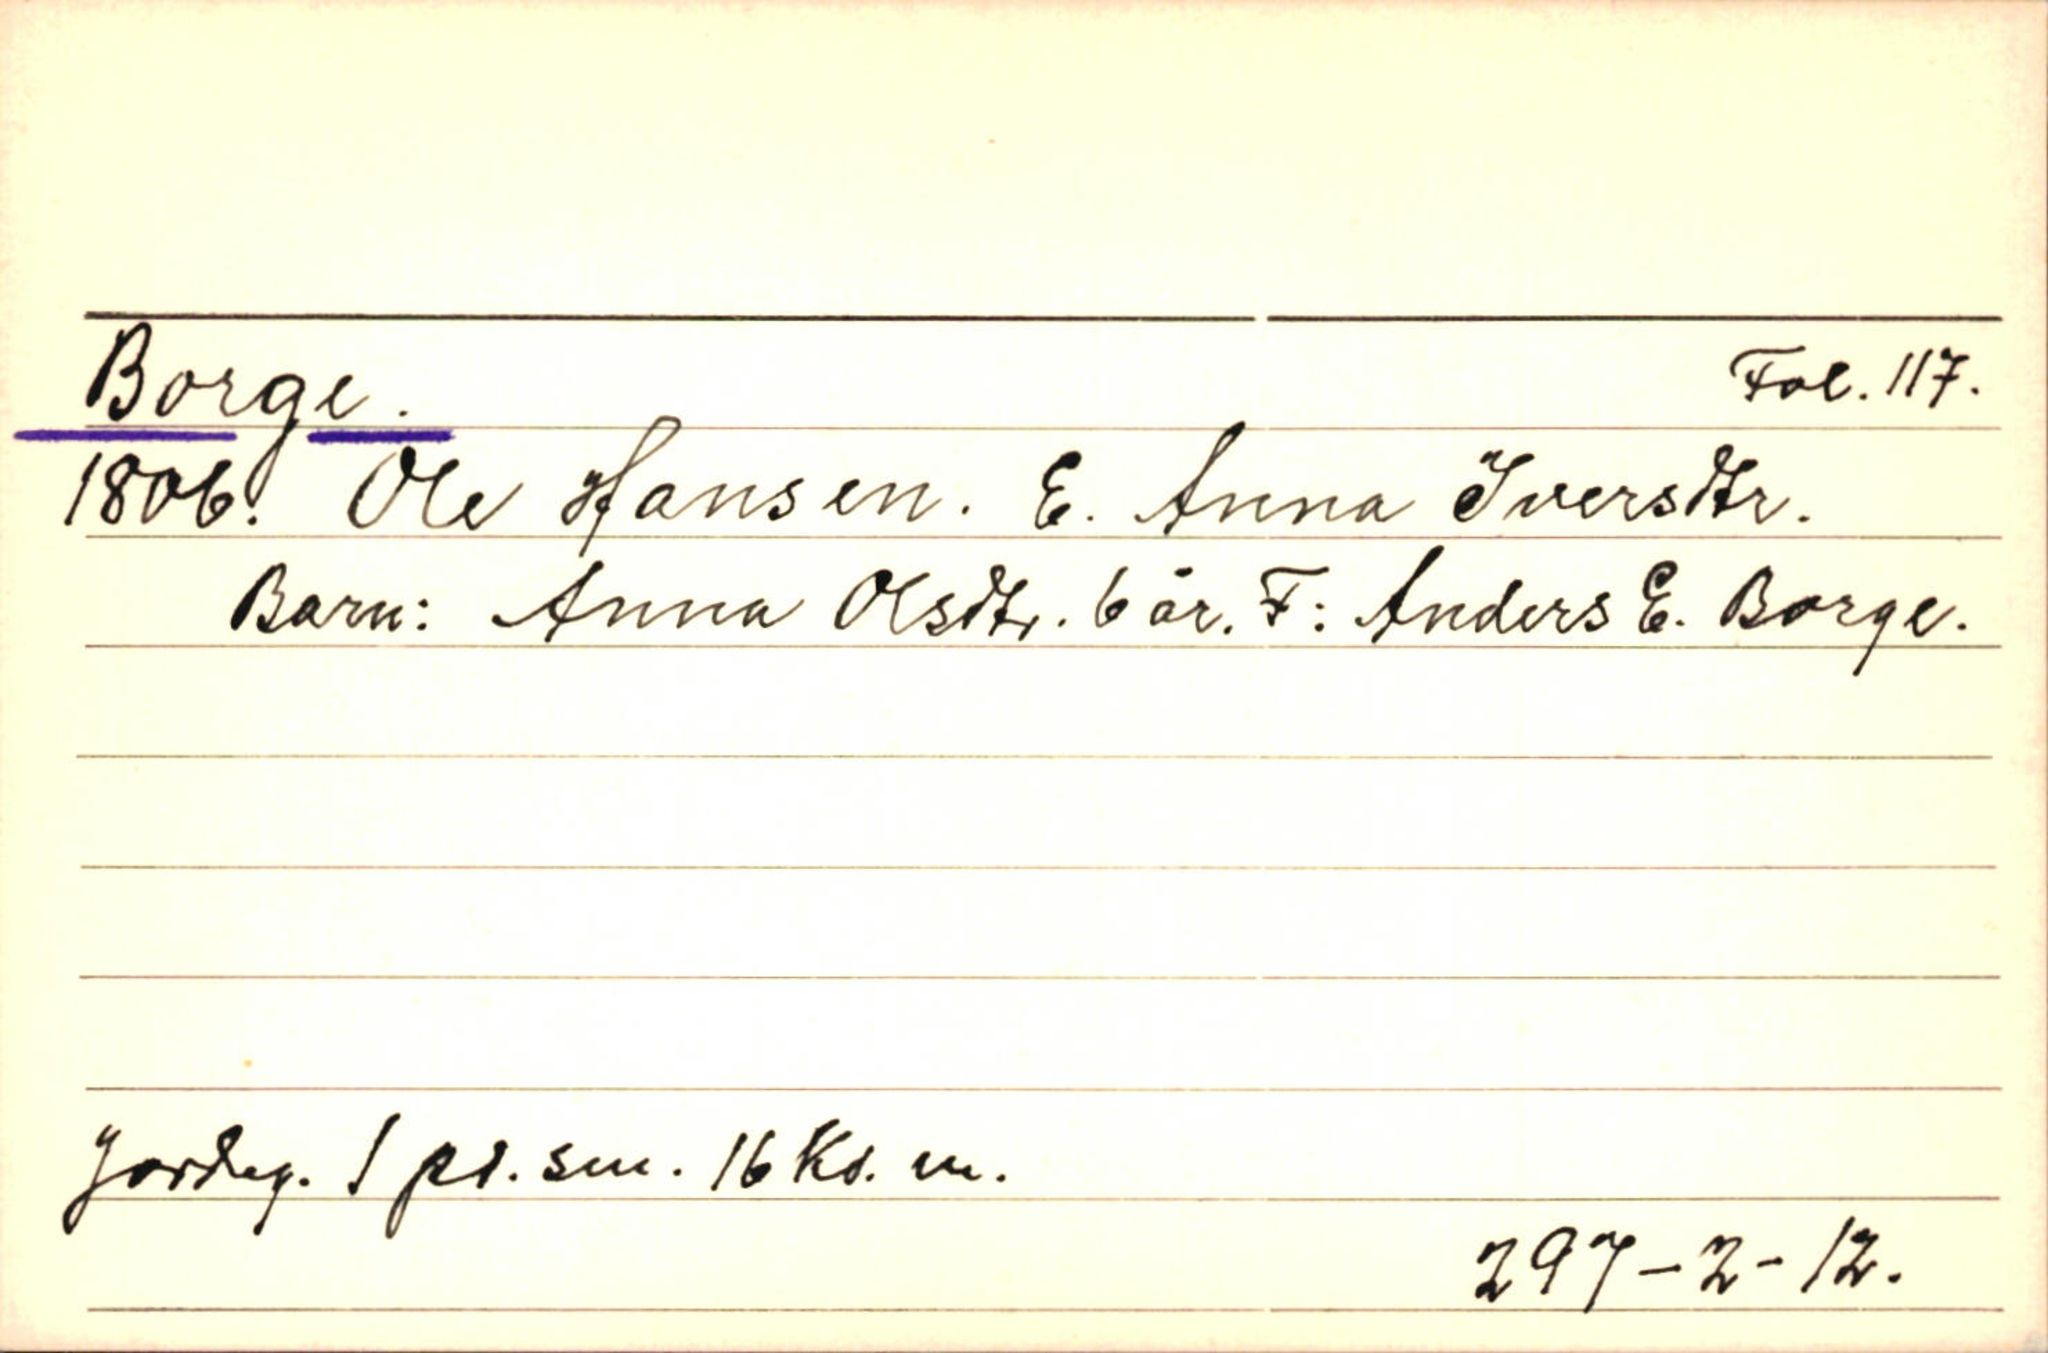 Borge. Fol. 117.
1806. Ole Hansen. E. Anna Iversdtr.
Barn: Anna Olsdtr. 6 år. F: Anders E. Borge.
Jordeg. 1 pd. sm. 16 Ks. m.
297-2-12.